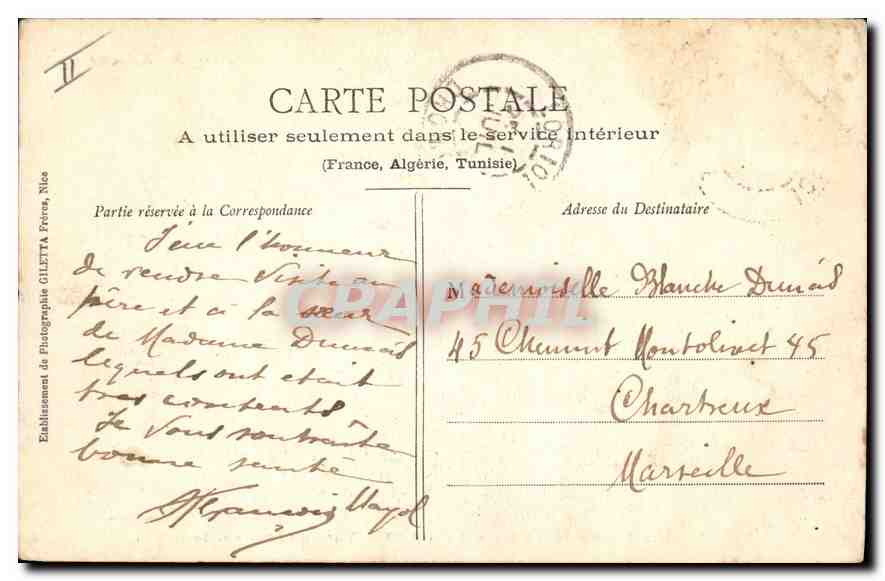 II
CARTE POSTALE
A utiliser seulement dans le service intérieur
(France, Algérie, Tunisie)
Partie réservée à la Correspondance
J'eue l'honneur
de rendre visite au
père et a la sœur
de Madame Dumas
lequels ont etait
tres contents
Je vous souhaite
bonne santé
Mayol
Adresse du Destinataire
Mademoiselle Blanche Dumas
45 Chemin Montolivet 45
Chartreux
Marseille
Etablissement de Photographie GILETTA Frères, Nice
CPAPHIL